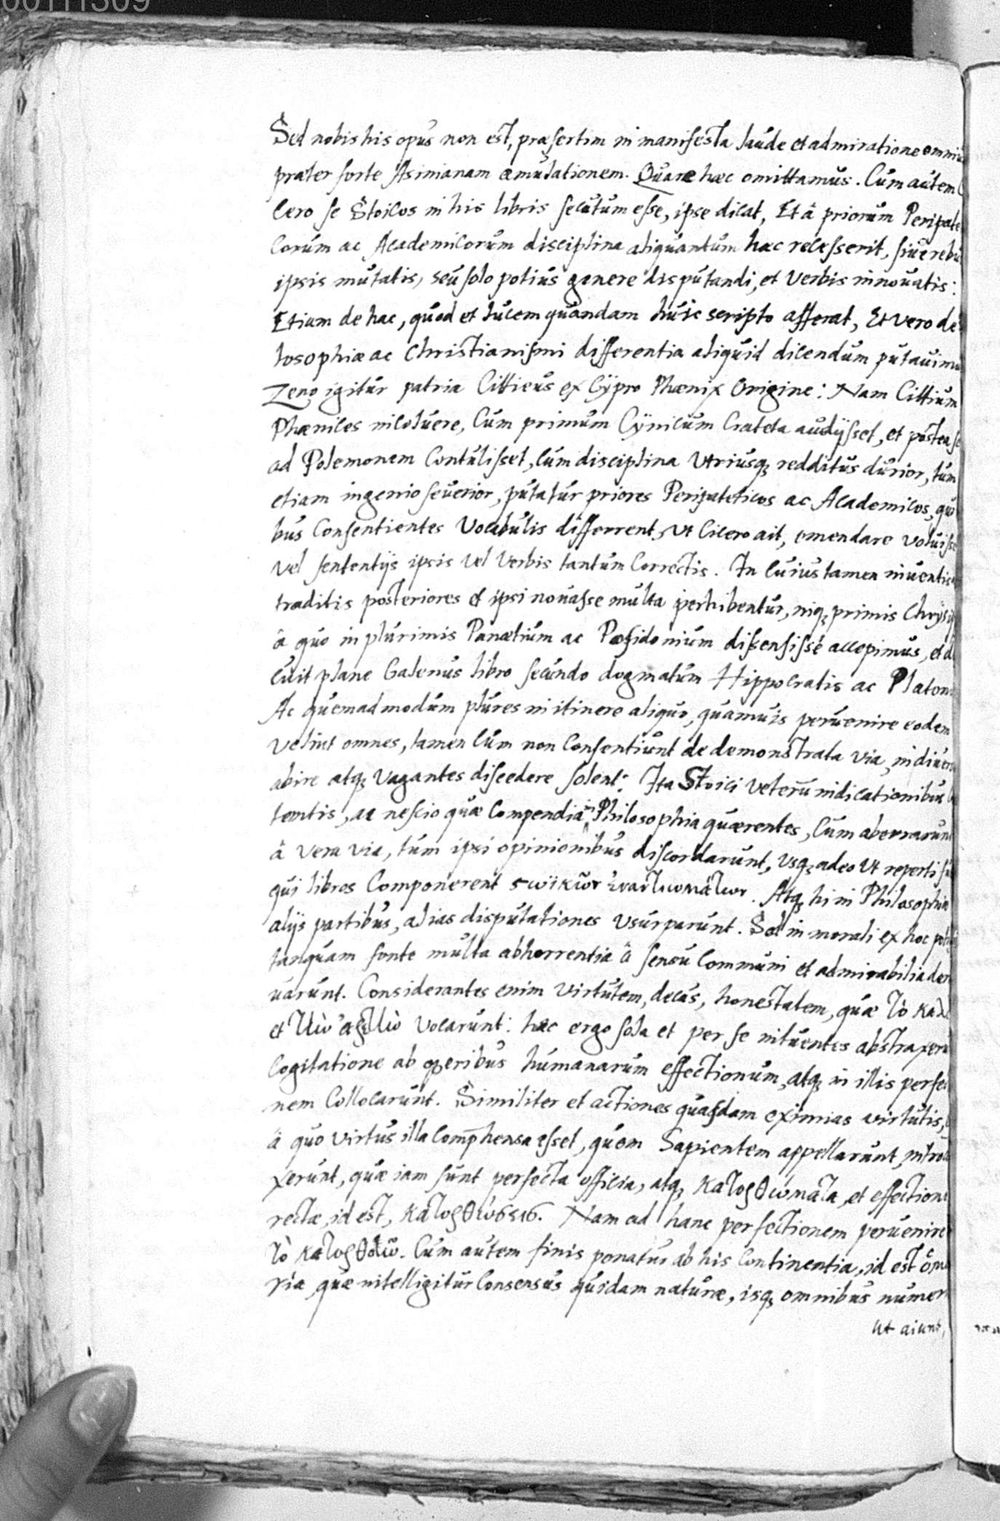 00111309
Sed nobis his opus non est, præsertim in manifesta laude et admiratione omniu
præter forte Asinianam æmulationem. Quare hæc omittamus. Cum autem Ci
cero se Stoicos in his libris secutum esse, ipse dicat, Et â priorum Peripate
corum ac Academicorum disciplina aliquantum hæc recesserit, siue rebus
ipsis mutatis, seu solo potius genere disputandi, et verbis innouatis:
Etiam de hac, quod et lucem quandam huic scripto afferat, Et vero de
losophiæ ac Christianismi differentia aliquid dicendum putauimu
Zeno igitur patria Cittieus ex Cypro Phœnix Origine: Nam Cittium
Phœnices incoluere, Cum primum Cynicum Crateta audijsset, et postea se
ad Polemonem Contulisset, Cum disciplina Utriusq. redditus durior, tum
etiam ingenio seuerior, putatur priores Peripateticos ac Academicos, qui
bus Consentientes Vocabulis differrent, vt Cicero ait, emendare voluisse
vel sententijs ipsis vel Verbis tantum Correctis. In Cuius tamen inuentio
traditis posteriores et ipsi nouasse multa perhibentur, inq. primis Chrysip
â quo in plurimis Panætium ac Posidonium dissensisse accepimus, et do
cuit plane Galenus libro secundo dogmatum Hippocratis ac Platoni
Ac quemadmodum plures in itinere aliquo, quamuis peruenire eodem
velint omnes, tamen Cum non Consentiunt de demonstrata via, in diuersa
abire atq. vagantes discedere solent: Ita Stoici veterū indicationibus
tentis, ac nescio quæ Compendia Philosophia quærentes, Cum aberrarunt
â vera via, tum ipsi opinionibus discordarunt, vsq. adeo vt reperti si
qui libros Componerent ςωϊκῶν ἐναντιωμάτων. Atq. hi in Philosophiæ
alijs partibus, alias disputationes vsurparunt. Sed in morali ex hoc
tanquam fonte multa abhorrentia â sensu Communi et admirabilia deri
uarunt. Considerantes enim virtutem, decus, honestatem, quæ τὸ καλὸ
et τὴν ἀρετὴν vocarunt: hæc ergo sola et per se intuentes abstraxeru
Cogitatione ab operibus humanarum effectionum, atq. in illis perfectio
nem Collocarunt. Similiter et actiones quasdam eximias virtutis,
â quo virtus illa Comp̄hensa esset, quem Sapientem appellarunt, introdu
xerunt, quæ iam sunt perfecta officia, atq. κατορθώματα, et effectione
rectæ, id est, κατορθώσεις. Nam ad hanc perfectionem peruenire
τὸ κατορθοῦν. Cum autem finis ponatur ab his Continentia, id est ὁμο
ria, quæ intelligitur Consensus quidam naturæ, isq. omnibus numer
ut aiunt,